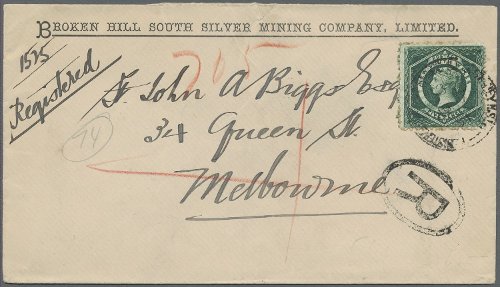 BROKEN HILL SOUTH SILVER MINING COMPANY, LIMITED.
1525
Registered
John A Biggs Esq
34 Queen St.
Melbourne
14
R